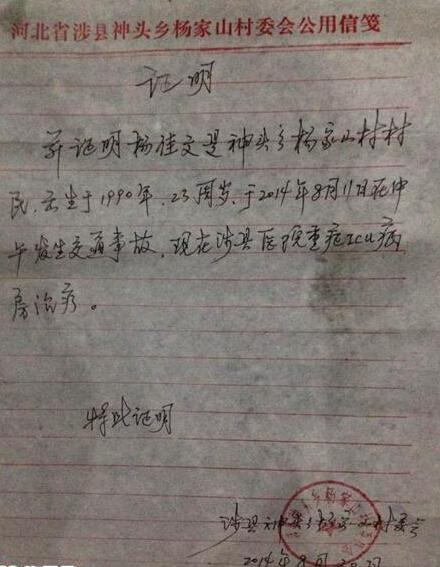 河北省涉县神头乡杨家山村委会公用信笺
证明
兹证明杨佳文是神头乡杨家山村村
民,出生于1990年,23周岁,于2014年8月11日在中
午发生交通事故,现在涉县医院重症ICU病
房治疗。
特此证明
涉县神头乡杨家山村委会
2014年8月20日